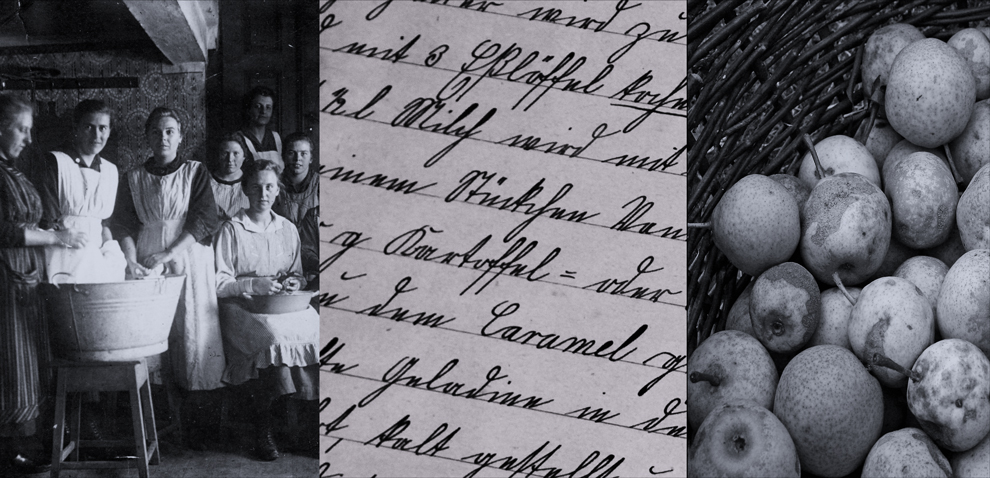 wird zu
mit 3 Eßlöffel
l Milch wird mit
einem Stückchen Van
g Kartoffel= oder
dem Caramel g
Geladine in de
kalt gestellt